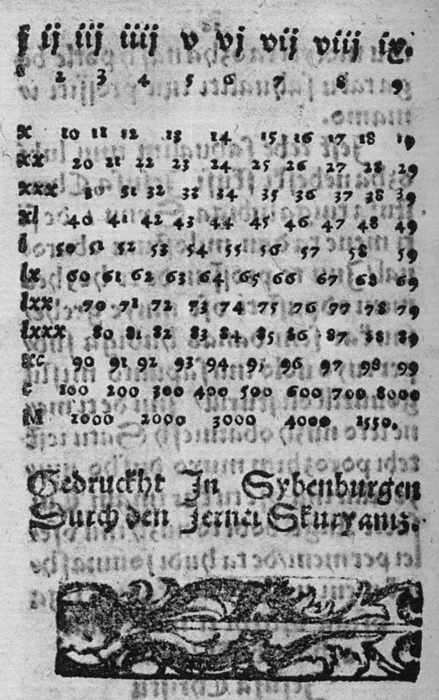 j ij iij iiij v vj vij viij ix.
2 3 4 5 6 7 8 9
x 10 11 12 13 14 15 16 17 18 19
xx 20 21 22 23 24 25 26 27 28 29
xxx 30 31 32 33 34 35 36 37 38 39
xl 40 41 42 43 44 45 46 47 48 49
l 50 51 52 53 54 55 56 57 58 59
lx 60 61 62 63 64 65 66 67 68 69
lxx 70 71 72 73 74 75 76 77 78 79
lxxx 80 81 82 83 84 85 86 87 88 89
xc 90 91 92 93 94 95 96 97 98 99
c 100 200 300 400 500 600 700 8000
M 1000 2000 3000 4000 1550.
Gedruckht In Sybenburgen
Durch den Jernei Skuryaniz.